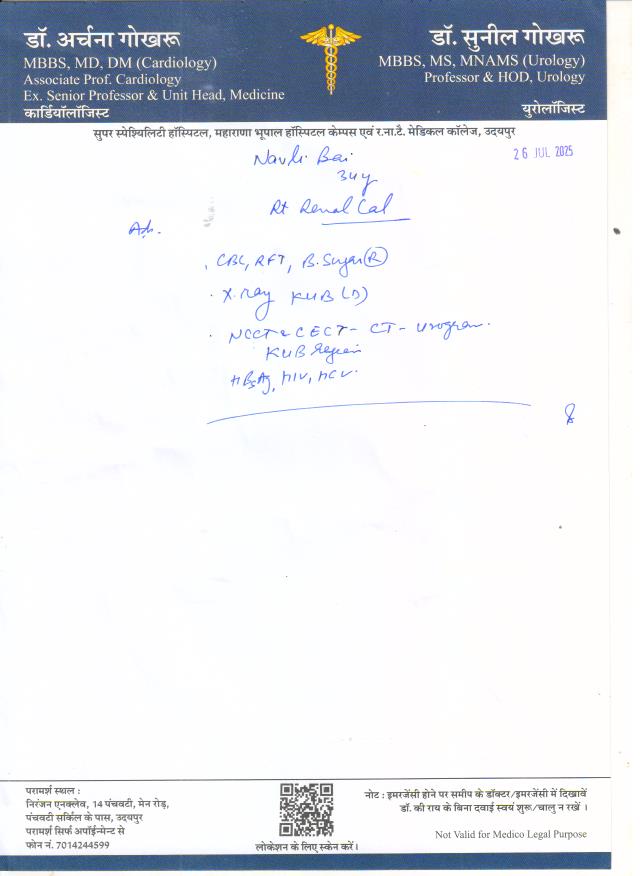 डॉ. अर्चना गोखरू
MBBS, MD, DM (Cardiology)
Associate Prof. Cardiology
Ex. Senior Professor & Unit Head, Medicine
कार्डियॉलॉजिस्ट
डॉ. सुनील गोखरू
MBBS, MS, MNAMS (Urology)
Professor & HOD, Urology
यूरोलॉजिस्ट
सुपर स्पेश्यिलिटी हॉस्पिटल, महाराणा भूपाल हॉस्पिटल केम्पस एवं र.ना.टै. मेडिकल कॉलेज, उदयपुर
26 JUL 2025
Navli Bai
34y
Rt Renal Cal
Adv.
. CBC, RFT, B.Sugar (R)
. X.ray KUB (D)
. NCCT & CECT - CT - Urogram.
KUB Region
HBsAg, HIV, HCV.
परामर्श स्थल :
निरंजन एनक्लेव, 14 पंचवटी, मेन रोड़,
पंचवटी सर्किल के पास, उदयपुर
परामर्श सिर्फ अपॉईन्मेन्ट से
फोन नं. 7014244599
लोकेशन के लिए स्केन करें।
नोट : इमरजेंसी होने पर समीप के डॉक्टर/इमरजेंसी में दिखावें
डॉ. की राय के बिना दवाई स्वयं शुरू/चालु न रखें ।
Not Valid for Medico Legal Purpose